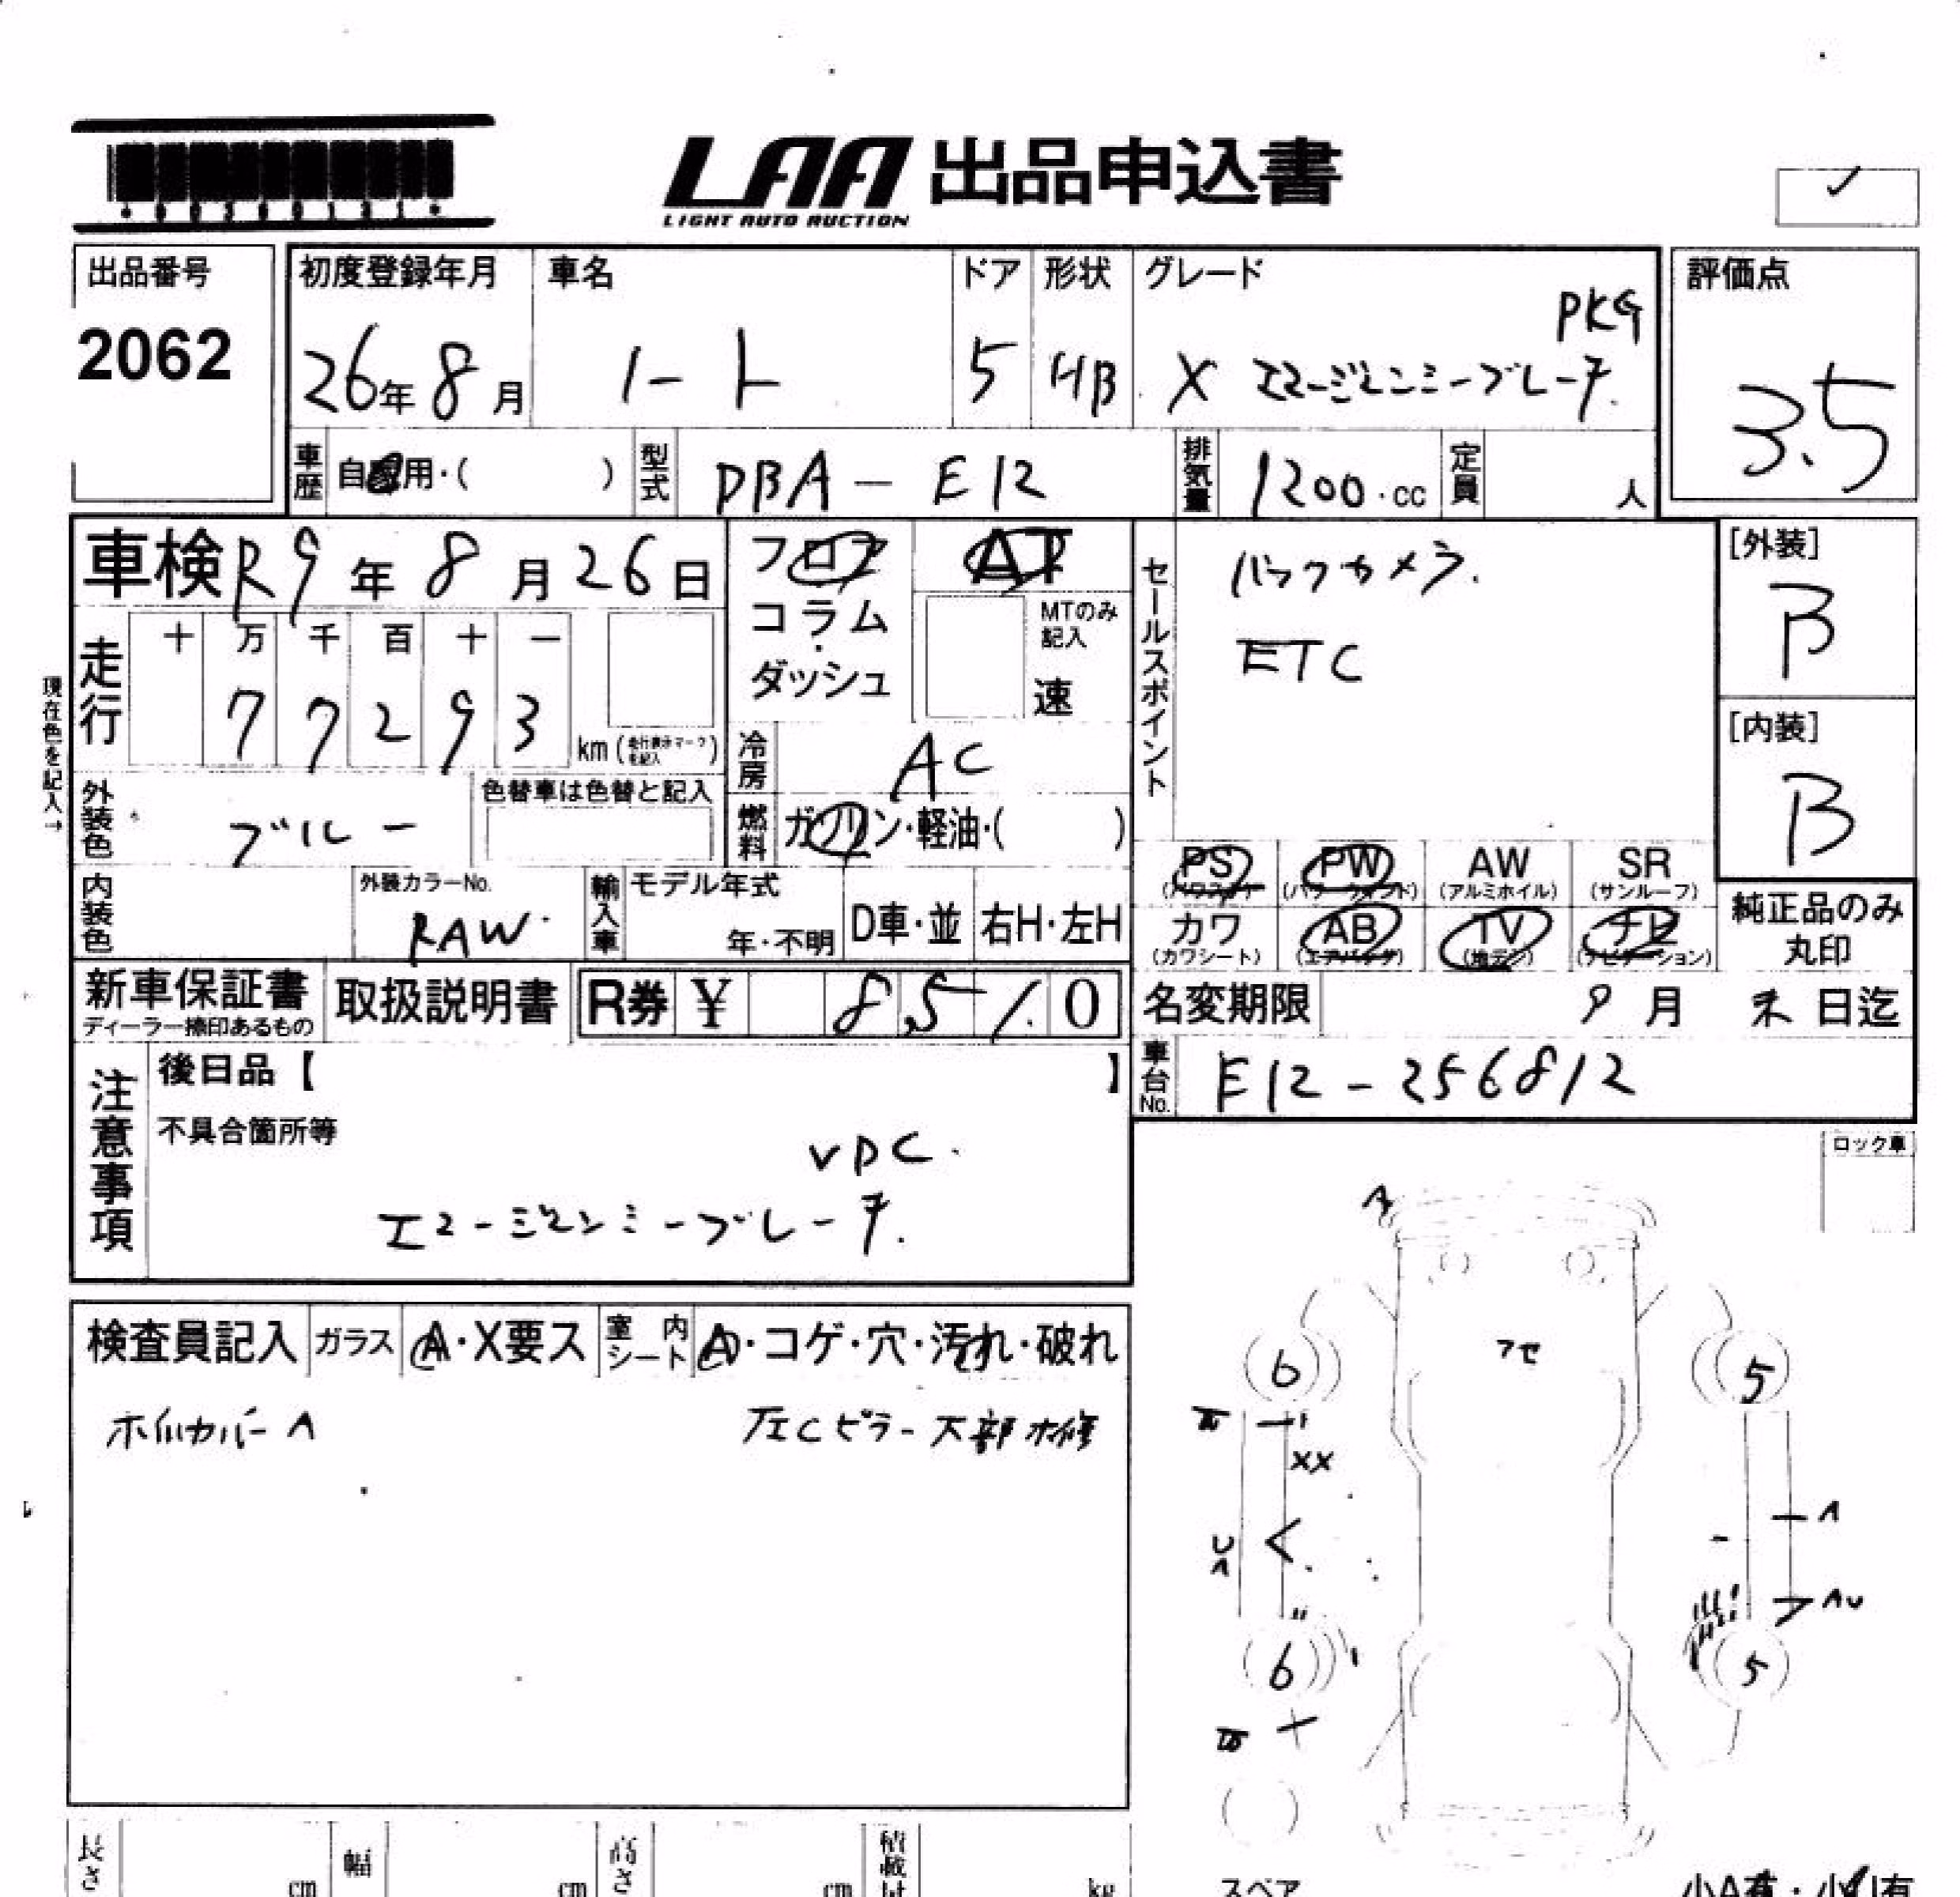 LAA 出品申込書
LIGHT AUTO AUCTION
出品番号
2062
初度登録年月
26年8月
車名
ノート
ドア
5
形状
HB
グレード
X エマージェンシーブレーキ PKG
評価点
3.5
車歴
自家用・( )
型式
DBA-E12
排気量
1200.cc
定員
人
車検 R9年8月26日
現在色を記入→
走行
十 万 千 百 十 一
7 7 2 9 3
km(走行表示マークを記入)
フロア
コラム
ダッシュ
AT
MTのみ記入
速
冷房
AC
燃料
ガソリン・軽油・( )
外装色
ブルー
色替車は色替と記入
内装色
外装カラーNo.
RAW
輸入車
モデル年式
年・不明
D車・並
右H・左H
セールスポイント
バックカメラ.
ETC
[外装]
B
[内装]
B
PS (パワステ)
PW (パワーウィンド)
AW (アルミホイル)
SR (サンルーフ)
カワ (カワシート)
AB (エアバッグ)
TV (地デジ)
ナビ (ナビゲーション)
純正品のみ
丸印
新車保証書
ディーラー捺印あるもの
取扱説明書
R券 ¥ 8,510
名変期限 9月末日迄
車台No.
E12-256812
注意事項
後日品【 】
不具合箇所等
VDC.
エマージェンシーブレーキ.
ロック車
検査員記入
ガラス
A・X要ス
室内シート
A・コゲ・穴・汚れ・破れ
ホイルカバーA
左Cピラー下部 補修
A
アセ
6
5
XX
U
A
A
AU
6
5
長さ
cm
幅
cm
高さ
cm
積載
kg
スペア
小A有・小U有